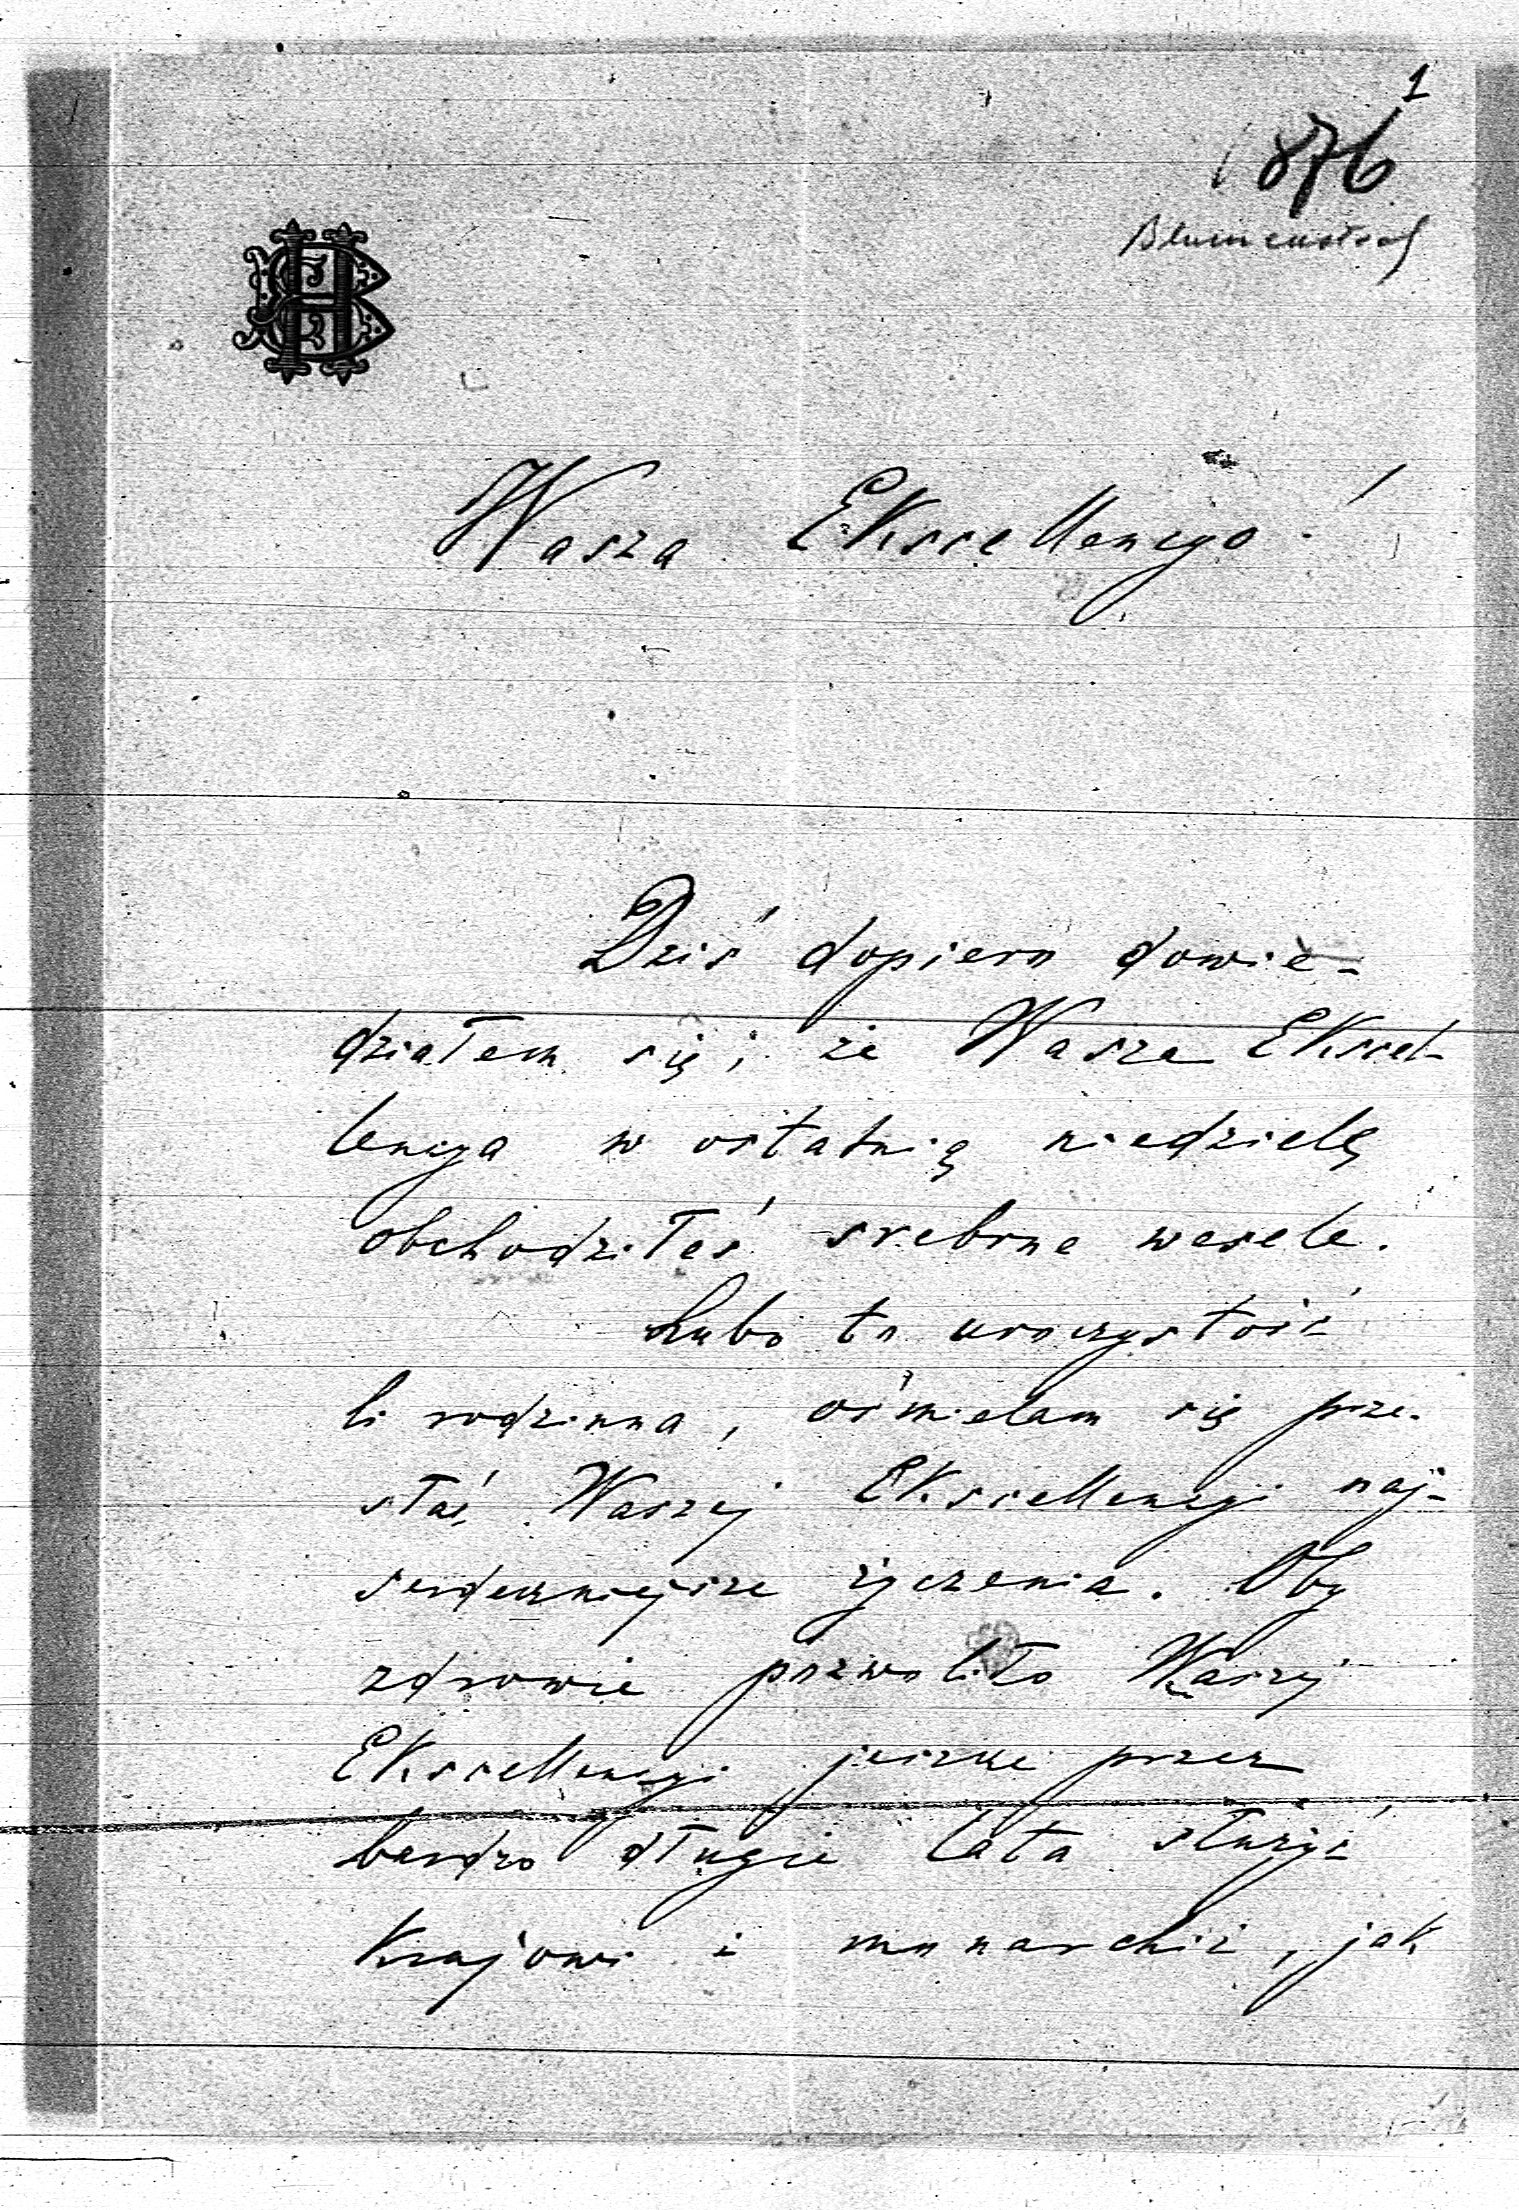 1
1876
Blumenstock
Wasza Ekscellencyo!
Dziś dopiero dowie-
działem się, że Wasza Ekscel-
lencya w ostatnią niedzielę
obchodziłeś srebrne wesele.
Lubo to uroczystość
li rodzinna, ośmielam się prze-
słać Waszej Ekscellencyi naj-
serdeczniejsze życzenia. Oby
zdrowie pozwoliło Waszej
Ekscellencyi jeszcze przez
bardzo długie lata służyć
Krajowi i monarchii, jak